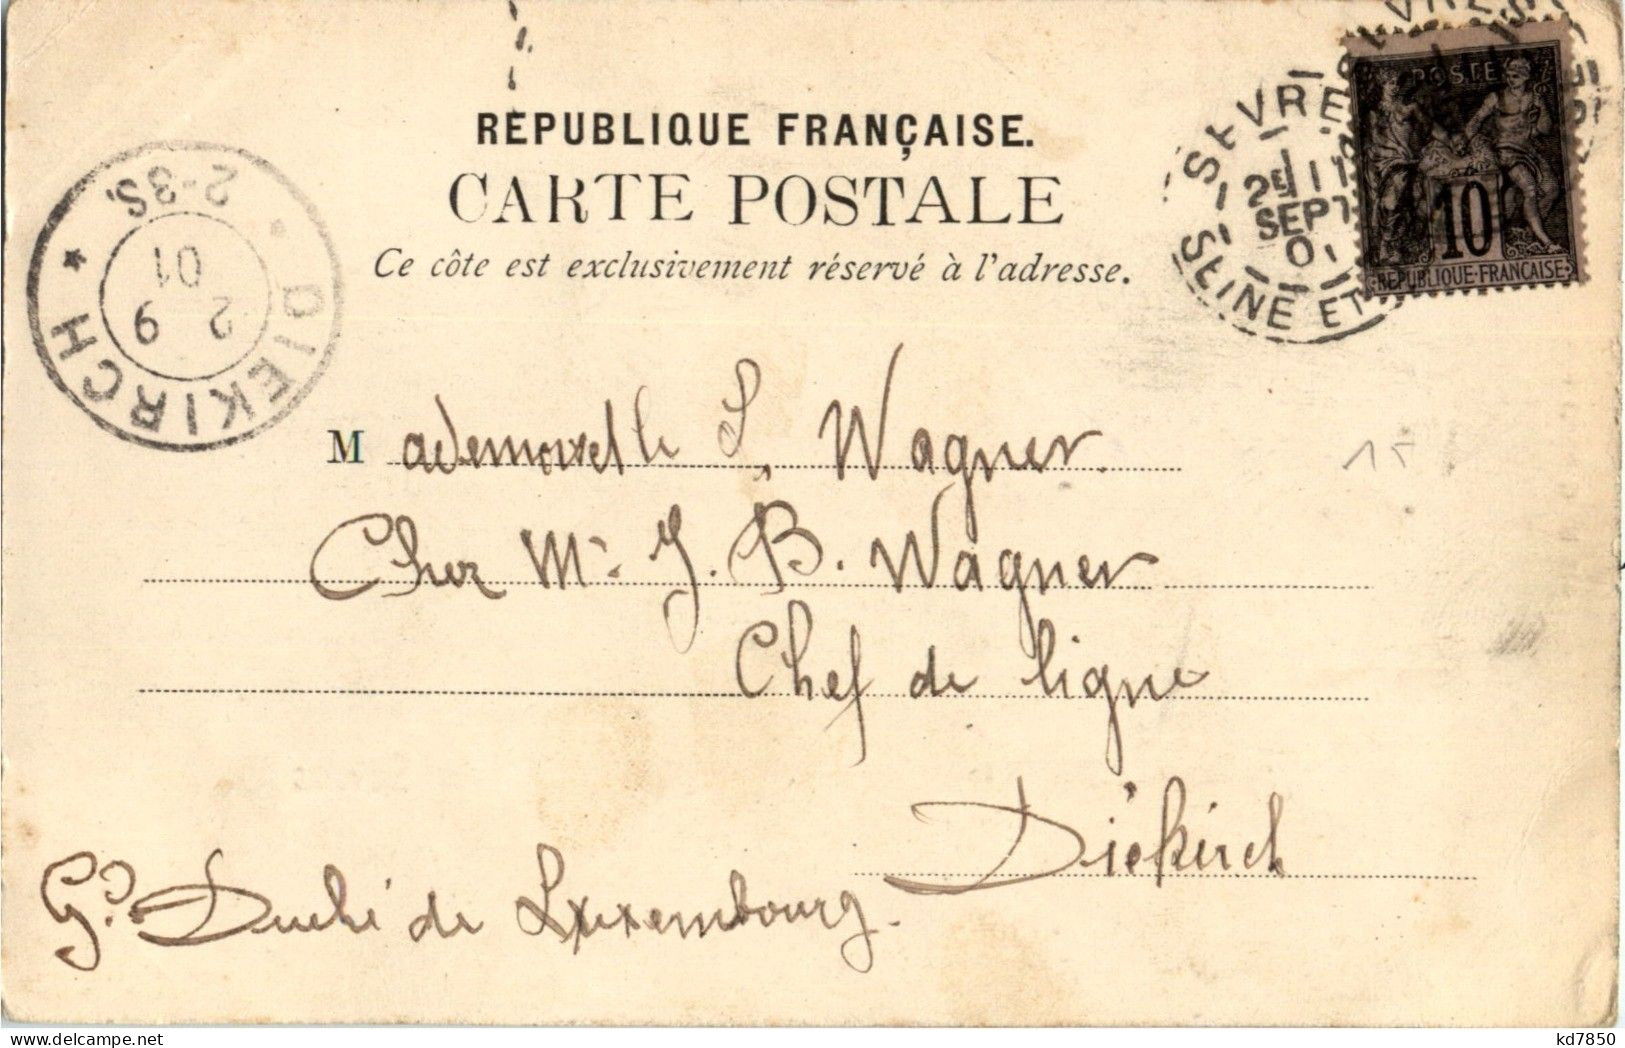 RÉPUBLIQUE FRANÇAISE.
CARTE POSTALE
Ce côte est exclusivement réservé à l'adresse.
SEVRES
2E 11
SEPT
01
SEINE ET
POSTE
10
REPUBLIQUE·FRANCAISE
* DIEKIRCH *
2 9
01
2-3S.
Mademoiselle S. Wagner.
Chez Mr. J. B. Wagner
Chef de ligne
Diekirch
Gd. Duché de Luxembourg.
15
kd7850